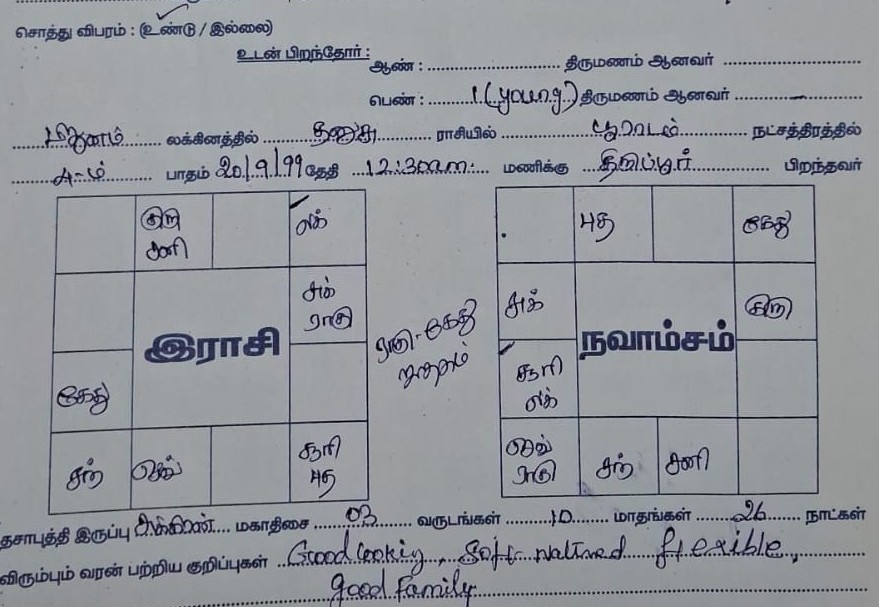 சொத்து விபரம் : (உண்டு / இல்லை)
உடன் பிறந்தோர் :
ஆண் : .............................. திருமணம் ஆனவர் ..............................
பெண் : ........1 (young) திருமணம் ஆனவர் ........–........
மிதுனம் லக்கினத்தில் தனுசு ராசியில் பூராடம் நட்சத்திரத்தில்
4-ம் பாதம் 20/9/99 தேதி 12:30a.m. மணிக்கு திருப்பூர் பிறந்தவர்
குரு சனி
லக்
சுக் ராகு
இராசி
கேது
சந்
செவ்
சூரி புத
ராகு-கேது
புத
கேது
சுக்
குரு
நவாம்சம்
சூரி லக்
செவ் ராகு
சந்
சனி
தசாபுத்தி இருப்பு சுக்கிரன் மகாதிசை 03 வருடங்கள் 10 மாதங்கள் 26 நாட்கள்
விரும்பும் வரன் பற்றிய குறிப்புகள் Good looking, Soft natured flexible,
good family